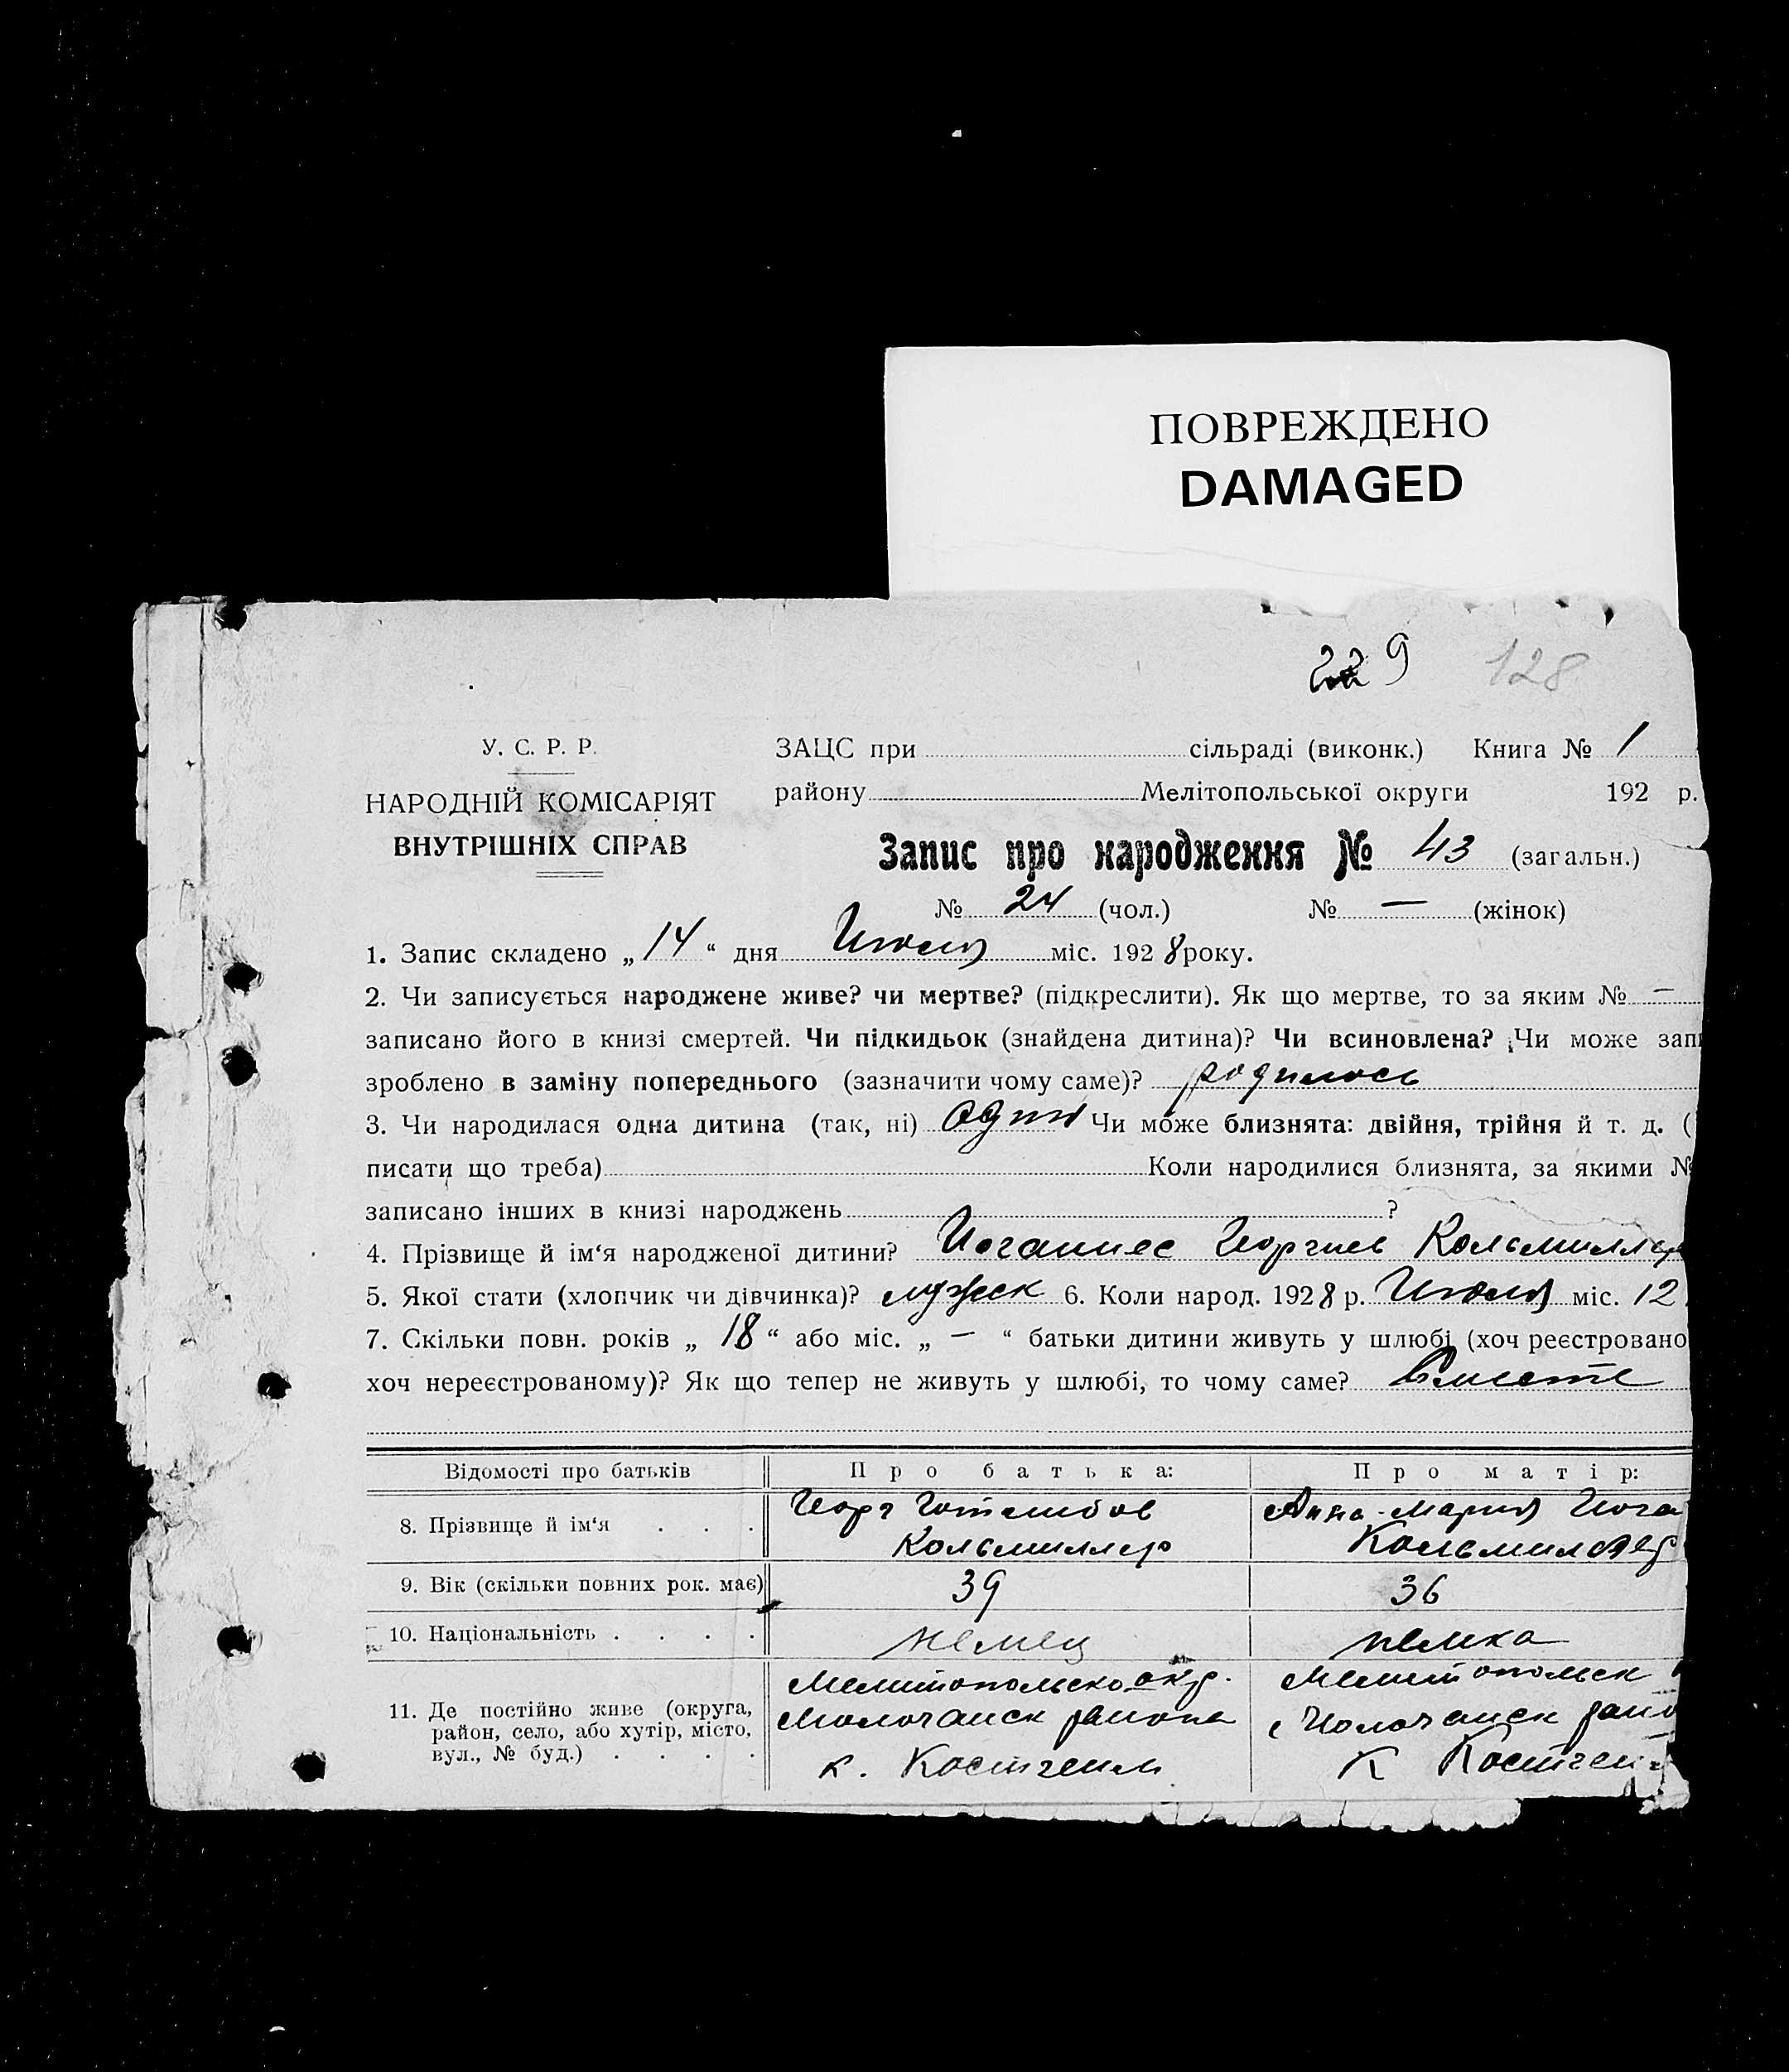 ПОВРЕЖДЕНО
DAMAGED
229 128
У. С. Р. Р.
НАРОДНІЙ КОМІСАРІЯТ
ВНУТРІШНІХ СПРАВ
ЗАЦС при сільраді (виконк.) Книга № 1
району Мелітопольської округи 192 р.
Запис про народження № 43 (загальн.)
№ 24 (чол.) № — (жінок)
1. Запис складено „14“ дня Июля міс. 1928 року.
2. Чи записується народжене живе? чи мертве? (підкреслити). Як що мертве, то за яким № —
записано його в книзі смертей. Чи підкидьок (знайдена дитина)? Чи всиновлена? Чи може зап
зроблено в заміну попереднього (зазначити чому саме)? родилось
3. Чи народилася одна дитина (так, ні) один Чи може близнята: двійня, трійня й т. д. (
писати що треба) Коли народилися близнята, за якими №
записано інших в книзі народжень ?
4. Прізвище й ім‘я народженої дитини? Иоганнес Георгиев Кольмиллер
5. Якої стати (хлопчик чи дівчинка)? мужск 6. Коли народ. 1928 р. Июля міс. 12
7. Скільки повн. років „18“ або міс. „—“ батьки дитини живуть у шлюбі (хоч реєстровано
хоч нереєстрованому)? Як що тепер не живуть у шлюбі, то чому саме? Вместе
Відомості про батьків Про батька: Про матір:
8. Прізвище й ім‘я . . . Георг Готлибов Кольмиллер Анна-Мария Иога Кольмиллер
9. Вік (скільки повних рок. має) 39 36
10. Національність . . . . немец немка
11. Де постійно живе (округа, район, село, або хутір, місто, вул., № буд.) . . . . Мелитопольско окр. Молочанск района к. Костгеим Мелитопольск Молочанск райо к Костгеи